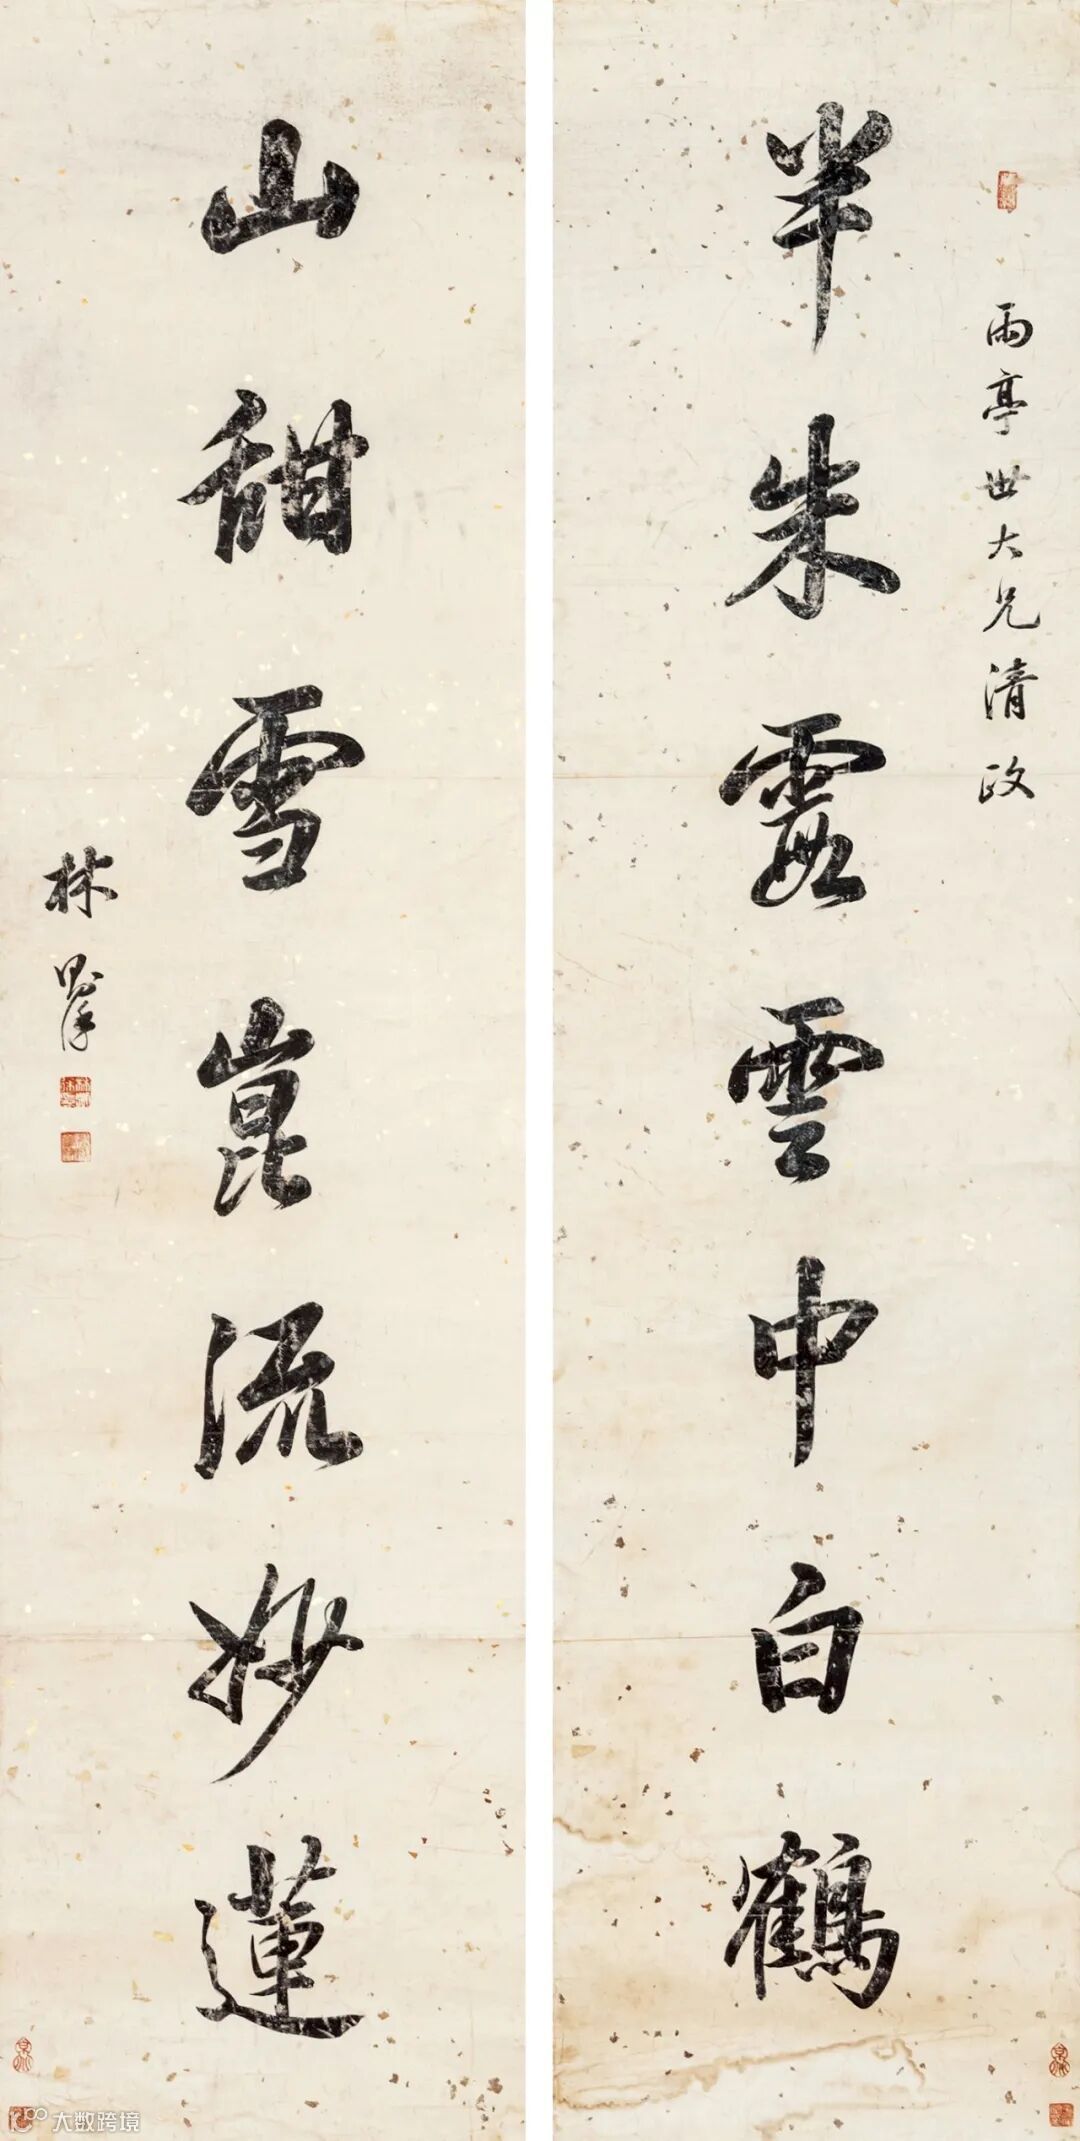 雨亭世大兄清政
半朱霞雲中白鶴
山甜雪崑流妙蓮
林則徐
大数跨境